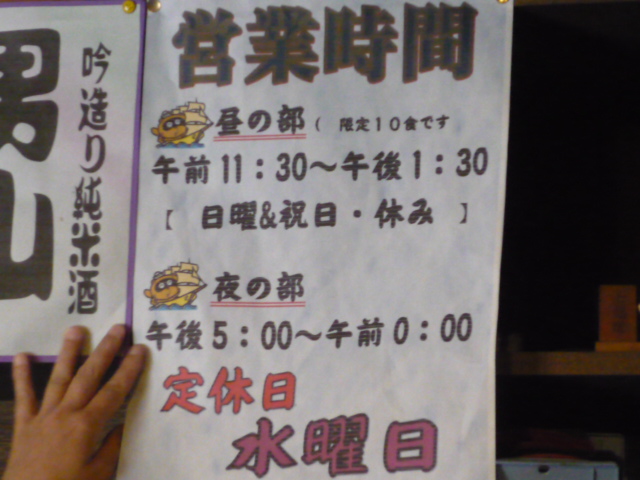 営業時間
昼の部 ( 限定10食です
午前11:30～午後1:30
【 日曜&祝日・休み 】
夜の部
午後5:00～午前0:00
定休日
水曜日
吟造り純米酒
男山